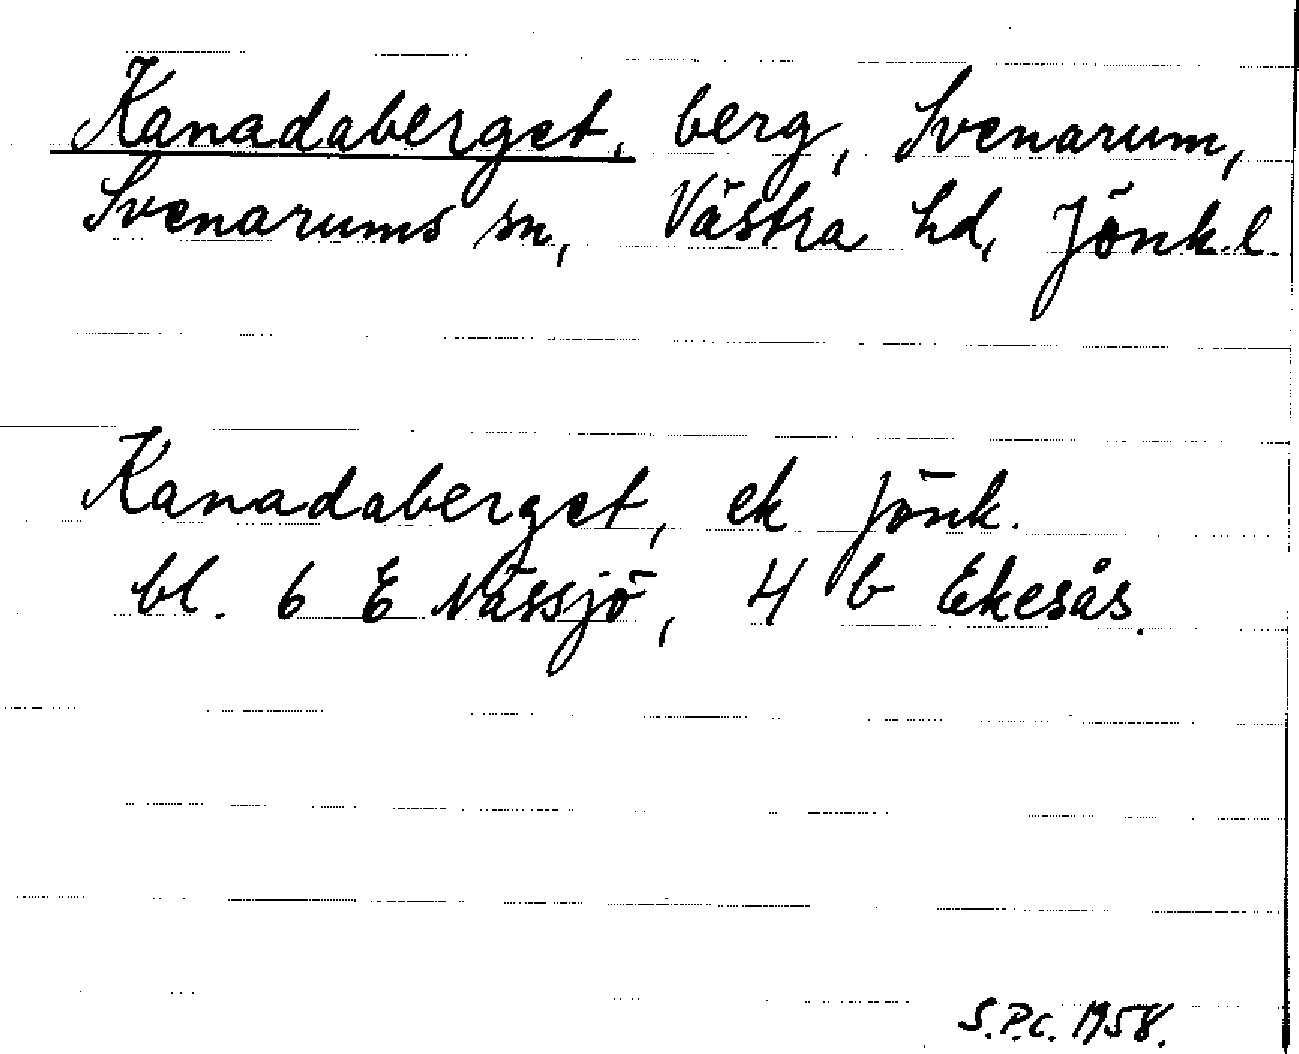 Kanadaberget, berg, Svenarum,
Svenarums sn, Västra hd, Jönk.l.
Kanadaberget, ek Jönk.
bl. 6 E Nässjö, 4 b Ekesås.
S.P.C. 1958.